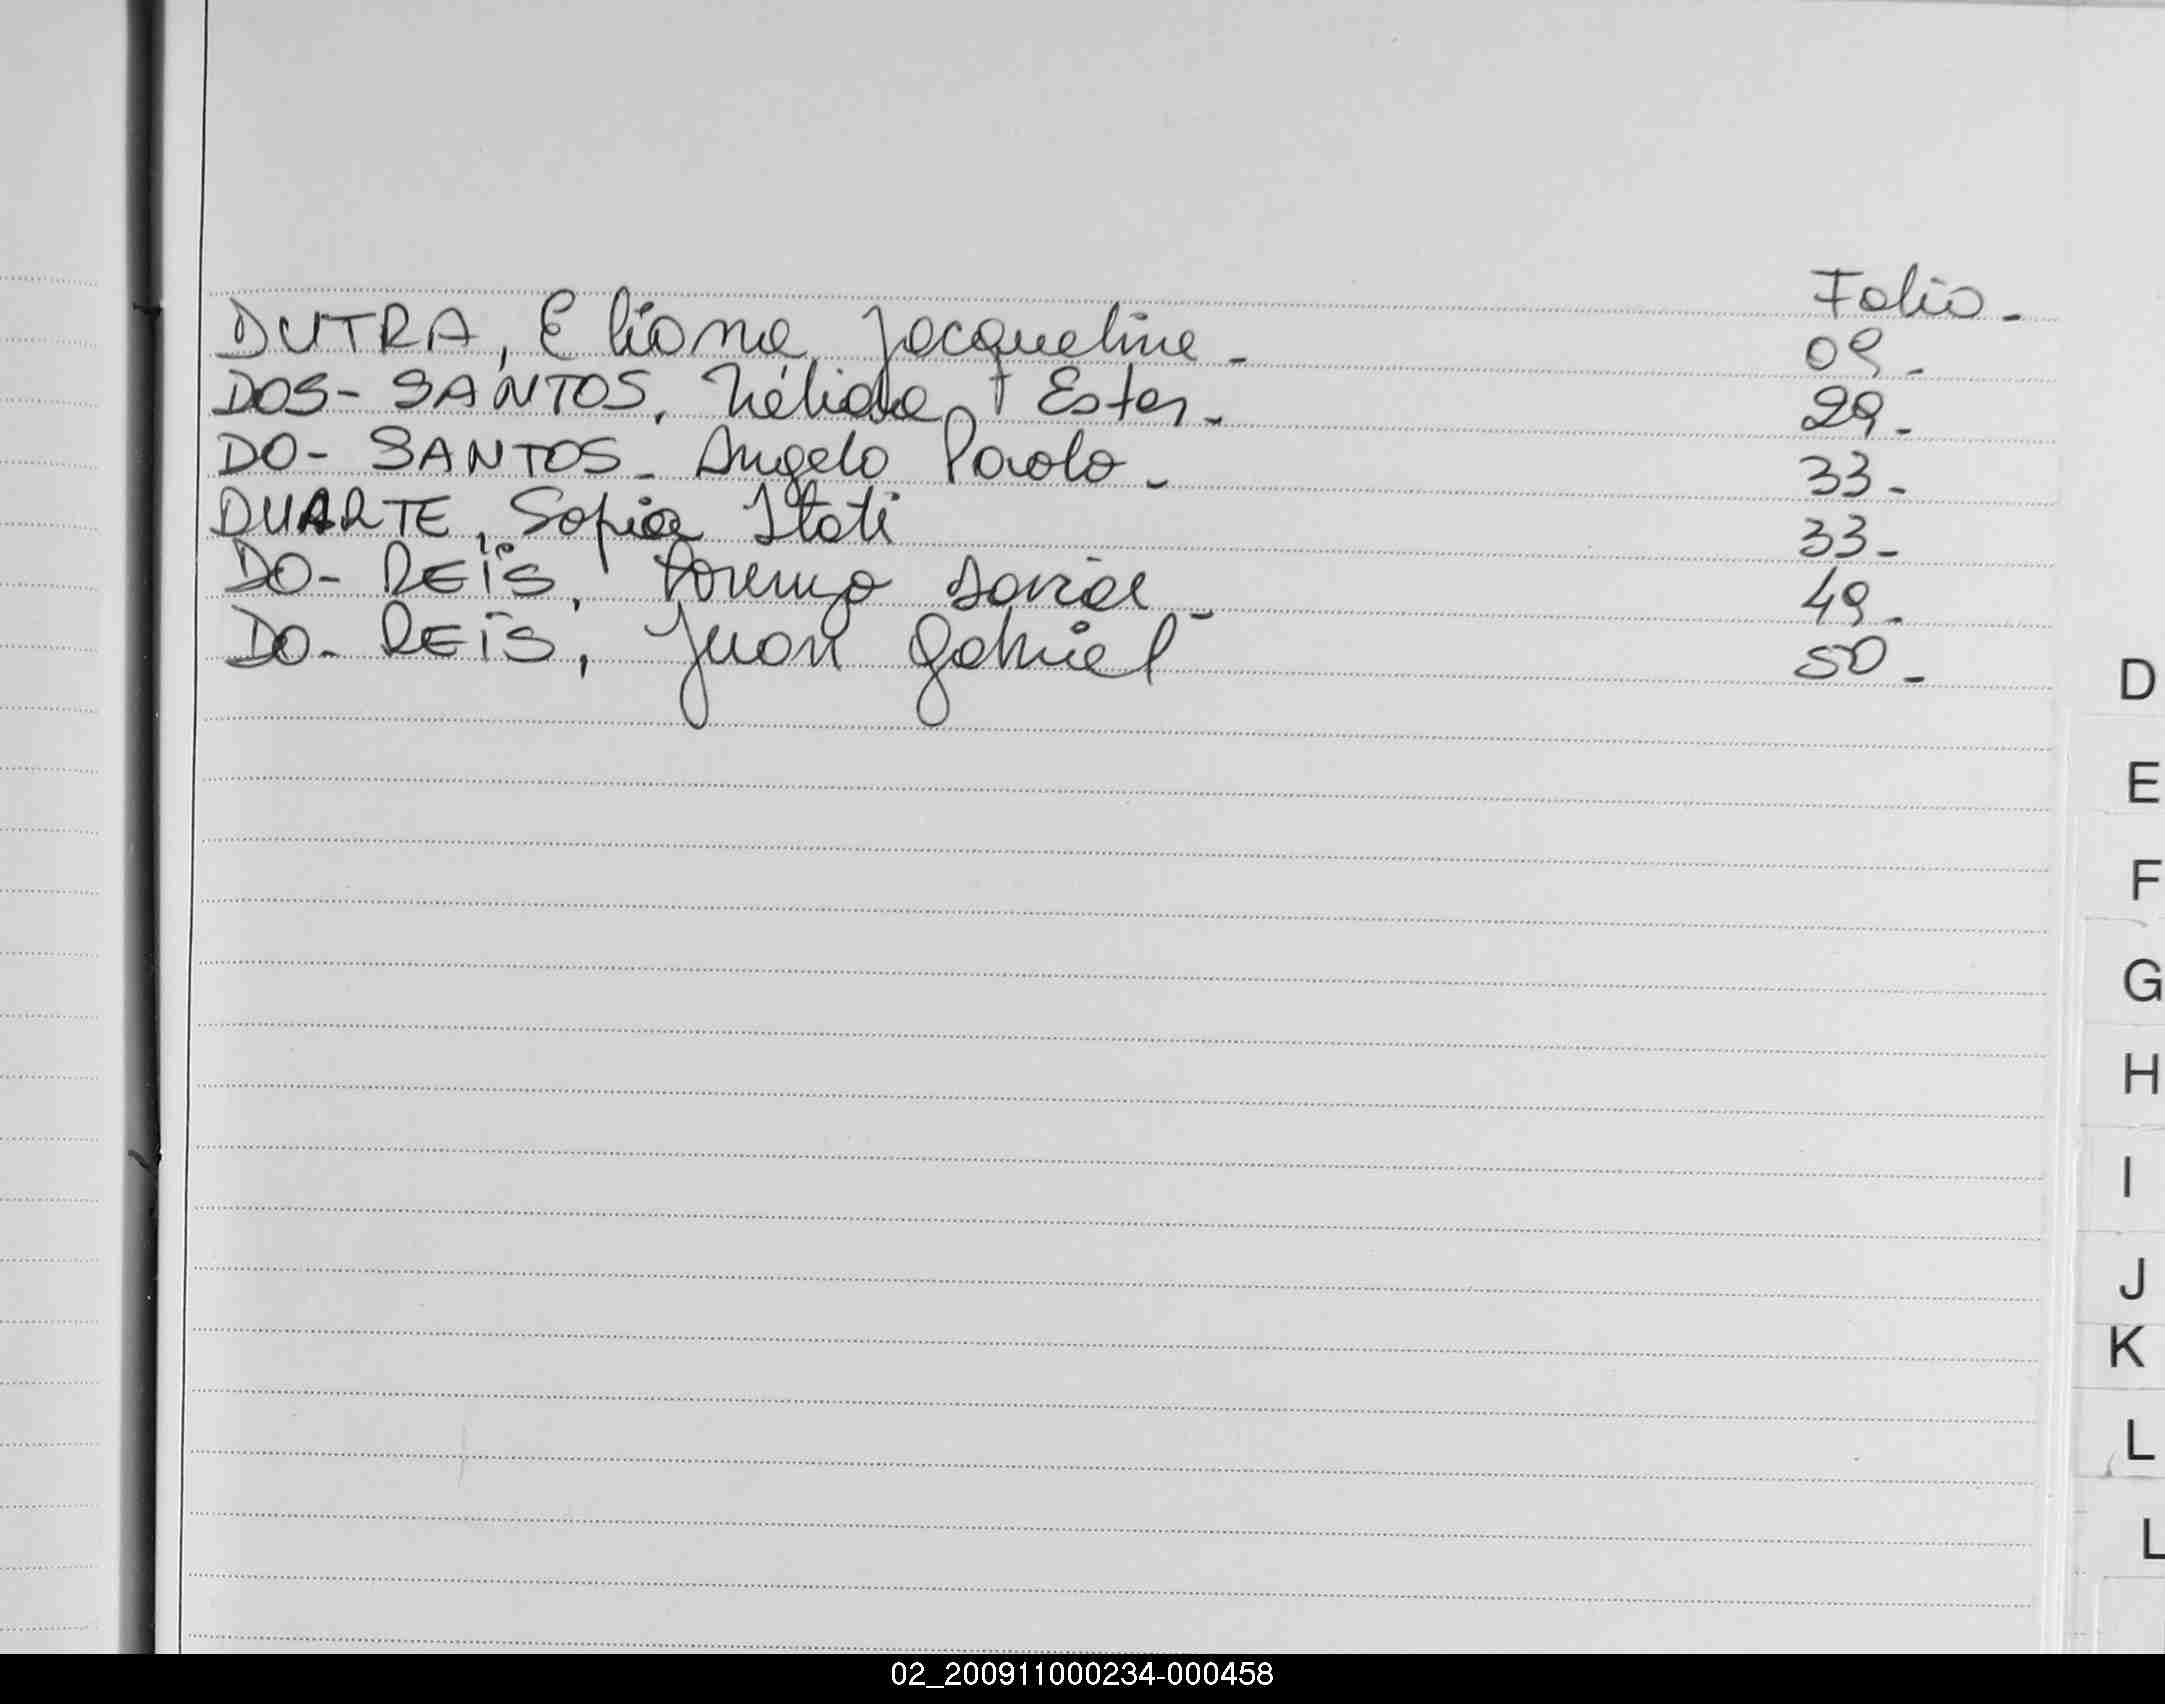 Folio -
DUTRA, Eliana Jacqueline - 09 -
DOS - SANTOS, Nélida Ester - 29 -
DO - SANTOS - Angelo Paolo - 33 -
DUARTE, Sofia Itati 33 -
DO - REIS, Lorenzo - 49 -
DO - REIS, Juan Gabriel 50 -
D
E
F
G
H
I
J
K
L
L
02_200911000234-000458